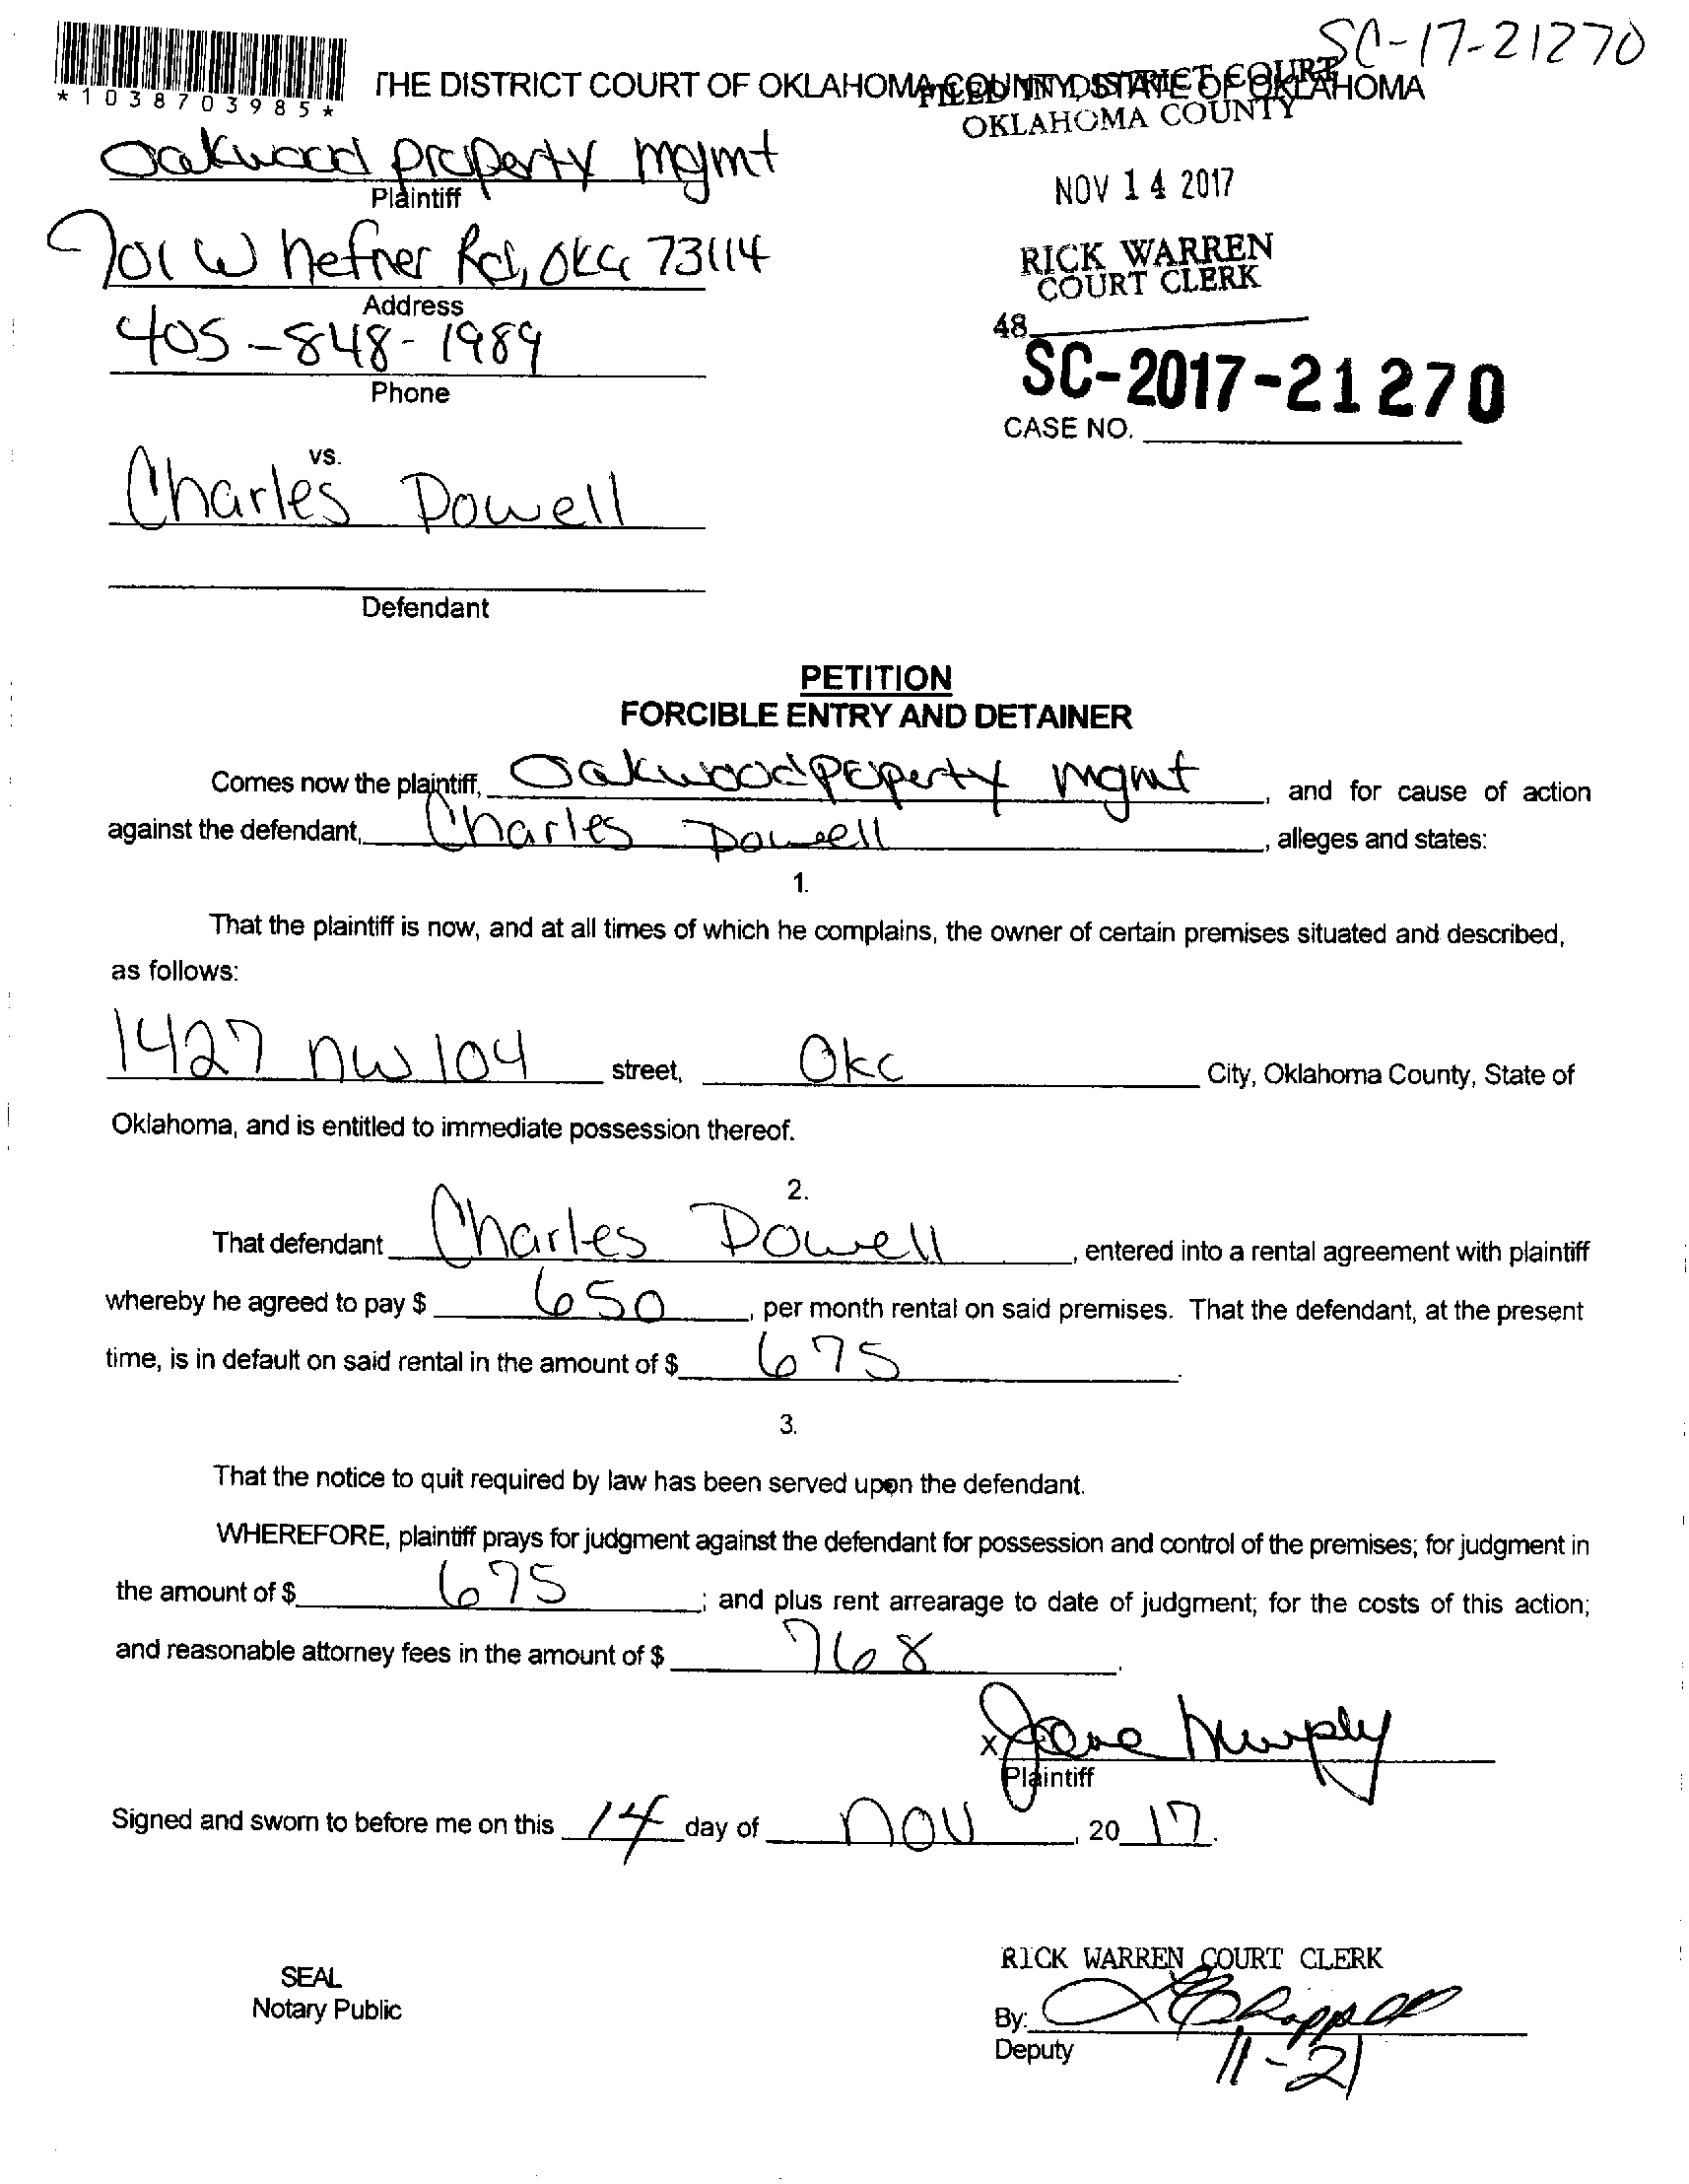 SC-17-21270
*1038703985*
THE DISTRICT COURT OF OKLAHOMA COUNTY, STATE OF OKLAHOMA
FILED IN DISTRICT COURT
OKLAHOMA COUNTY
Oakwood property mgmt
Plaintiff
NOV 14 2017
701 W hefner Rd, OKC 73114
Address
RICK WARREN
COURT CLERK
405-848-1989
Phone
48
SC-2017-21270
CASE NO.
vs.
Charles Powell
Defendant
PETITION
FORCIBLE ENTRY AND DETAINER
Comes now the plaintiff, Oakwood property mgmt, and for cause of action
against the defendant, Charles Powell, alleges and states:
1.
That the plaintiff is now, and at all times of which he complains, the owner of certain premises situated and described,
as follows:
1427 nw 104 street, Okc City, Oklahoma County, State of
Oklahoma, and is entitled to immediate possession thereof.
2.
That defendant Charles Powell, entered into a rental agreement with plaintiff
whereby he agreed to pay $ 650, per month rental on said premises. That the defendant, at the present
time, is in default on said rental in the amount of $ 675.
3.
That the notice to quit required by law has been served upon the defendant.
WHEREFORE, plaintiff prays for judgment against the defendant for possession and control of the premises; for judgment in
the amount of $ 675; and plus rent arrearage to date of judgment; for the costs of this action;
and reasonable attorney fees in the amount of $ 768.
x Jane Murphy
Plaintiff
Signed and sworn to before me on this 14 day of nov, 20 17.
SEAL
Notary Public
RICK WARREN COURT CLERK
By:
Deputy
11-21